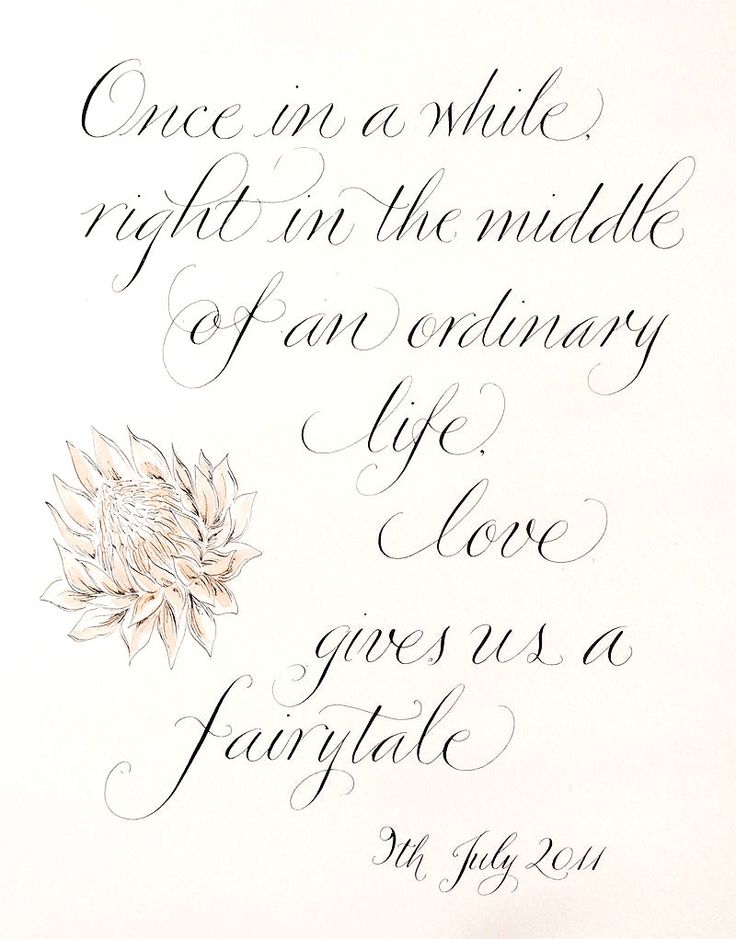 Once in a while,
right in the middle
of an ordinary
life,
love
gives us a
fairytale
9th July 2011